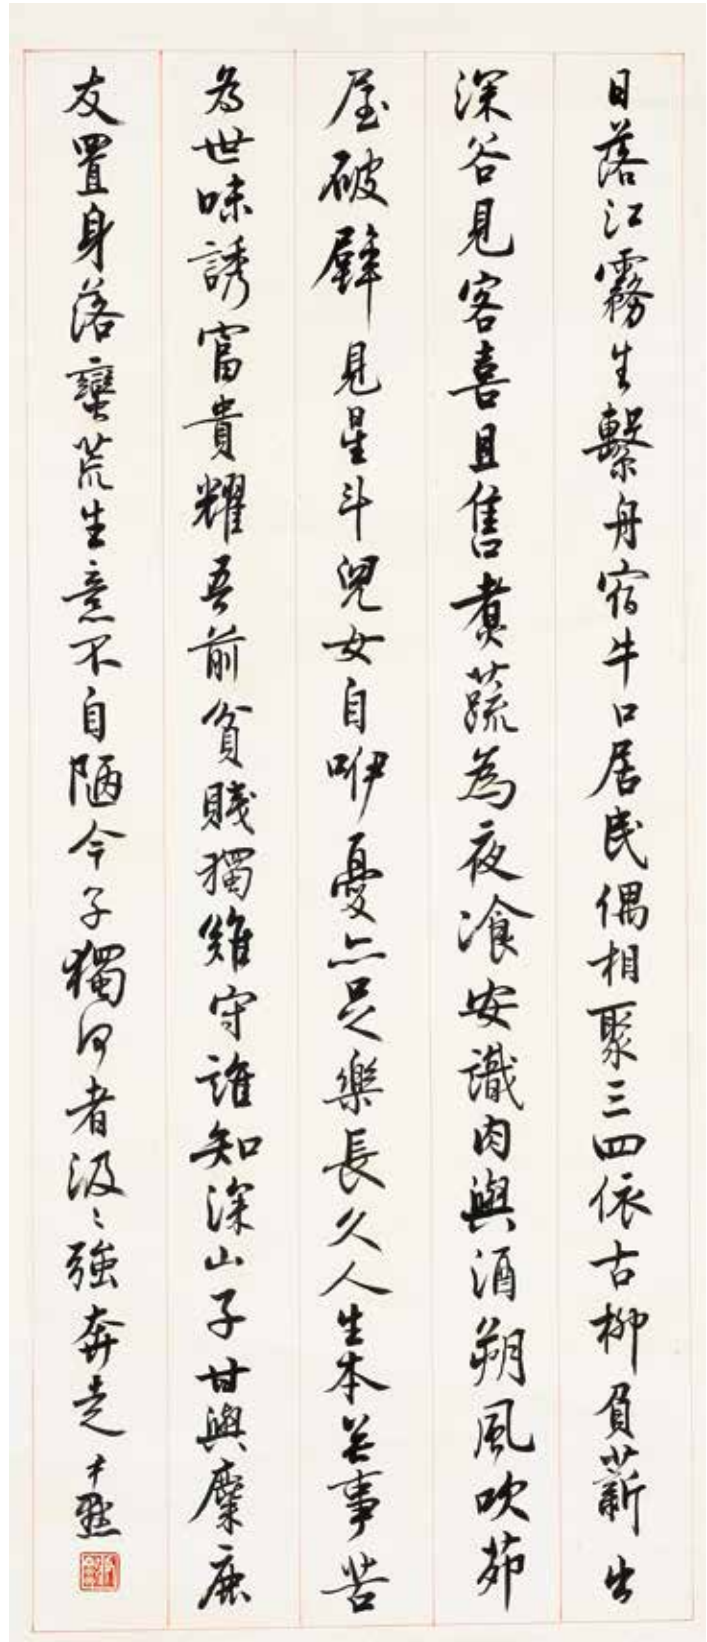 日落江霧生繫舟宿牛口居民偶相聚三四依古柳負薪出
深谷見客喜且售煮蔬為夜飡安識肉與酒朔風吹茆
屋破壁見星斗兒女自咿嚘亦足樂長久人生本無事苦
為世味誘富貴耀吾前貧賤獨難守誰知深山子甘與麋鹿
友置身落蠻荒生意不自陋今子獨何者汲〻強奔走 尹默